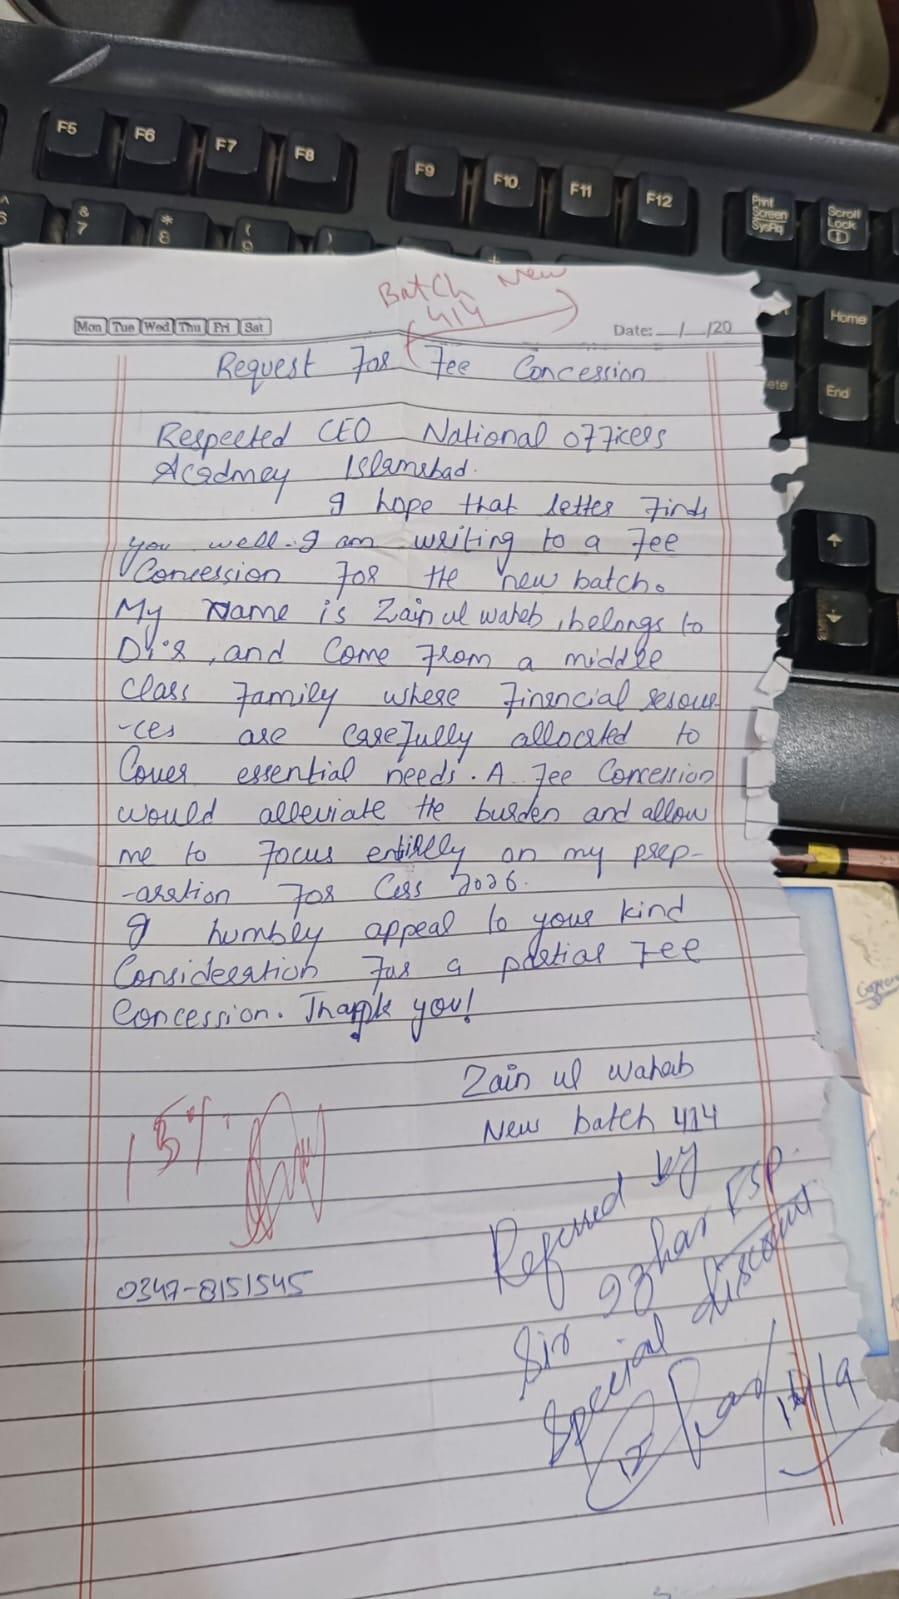 F5 F6 F7 F8 F9 F10 F11 F12 Print Screen SysRq Scroll Lock
& 7 * 8 ( 9 )
Home
End
Batch New
414
Mon Tue Wed Thu Fri Sat
Date: __/__/20
Request For Fee Concession
Respected CEO National Officers
Acadmey Islamabad.
I hope that letter finds
you well. I am writing to a fee
Concession for the new batch.
My Name is Zain ul wahab, belongs to
and come from a middle
class family where financial resour
-ces are carefully allocated to
Cover essential needs. A fee Concession
would alleviate the burden and allow
me to focus entirely on my prep-
-aration for Css 2026.
I humbly appeal to your kind
Consideration for a partial fee
Concession. Thank you!
Zain ul wahab
New batch 414
15%
Referred by
Sir Izhar FSP.
Special discount
0347-8151545